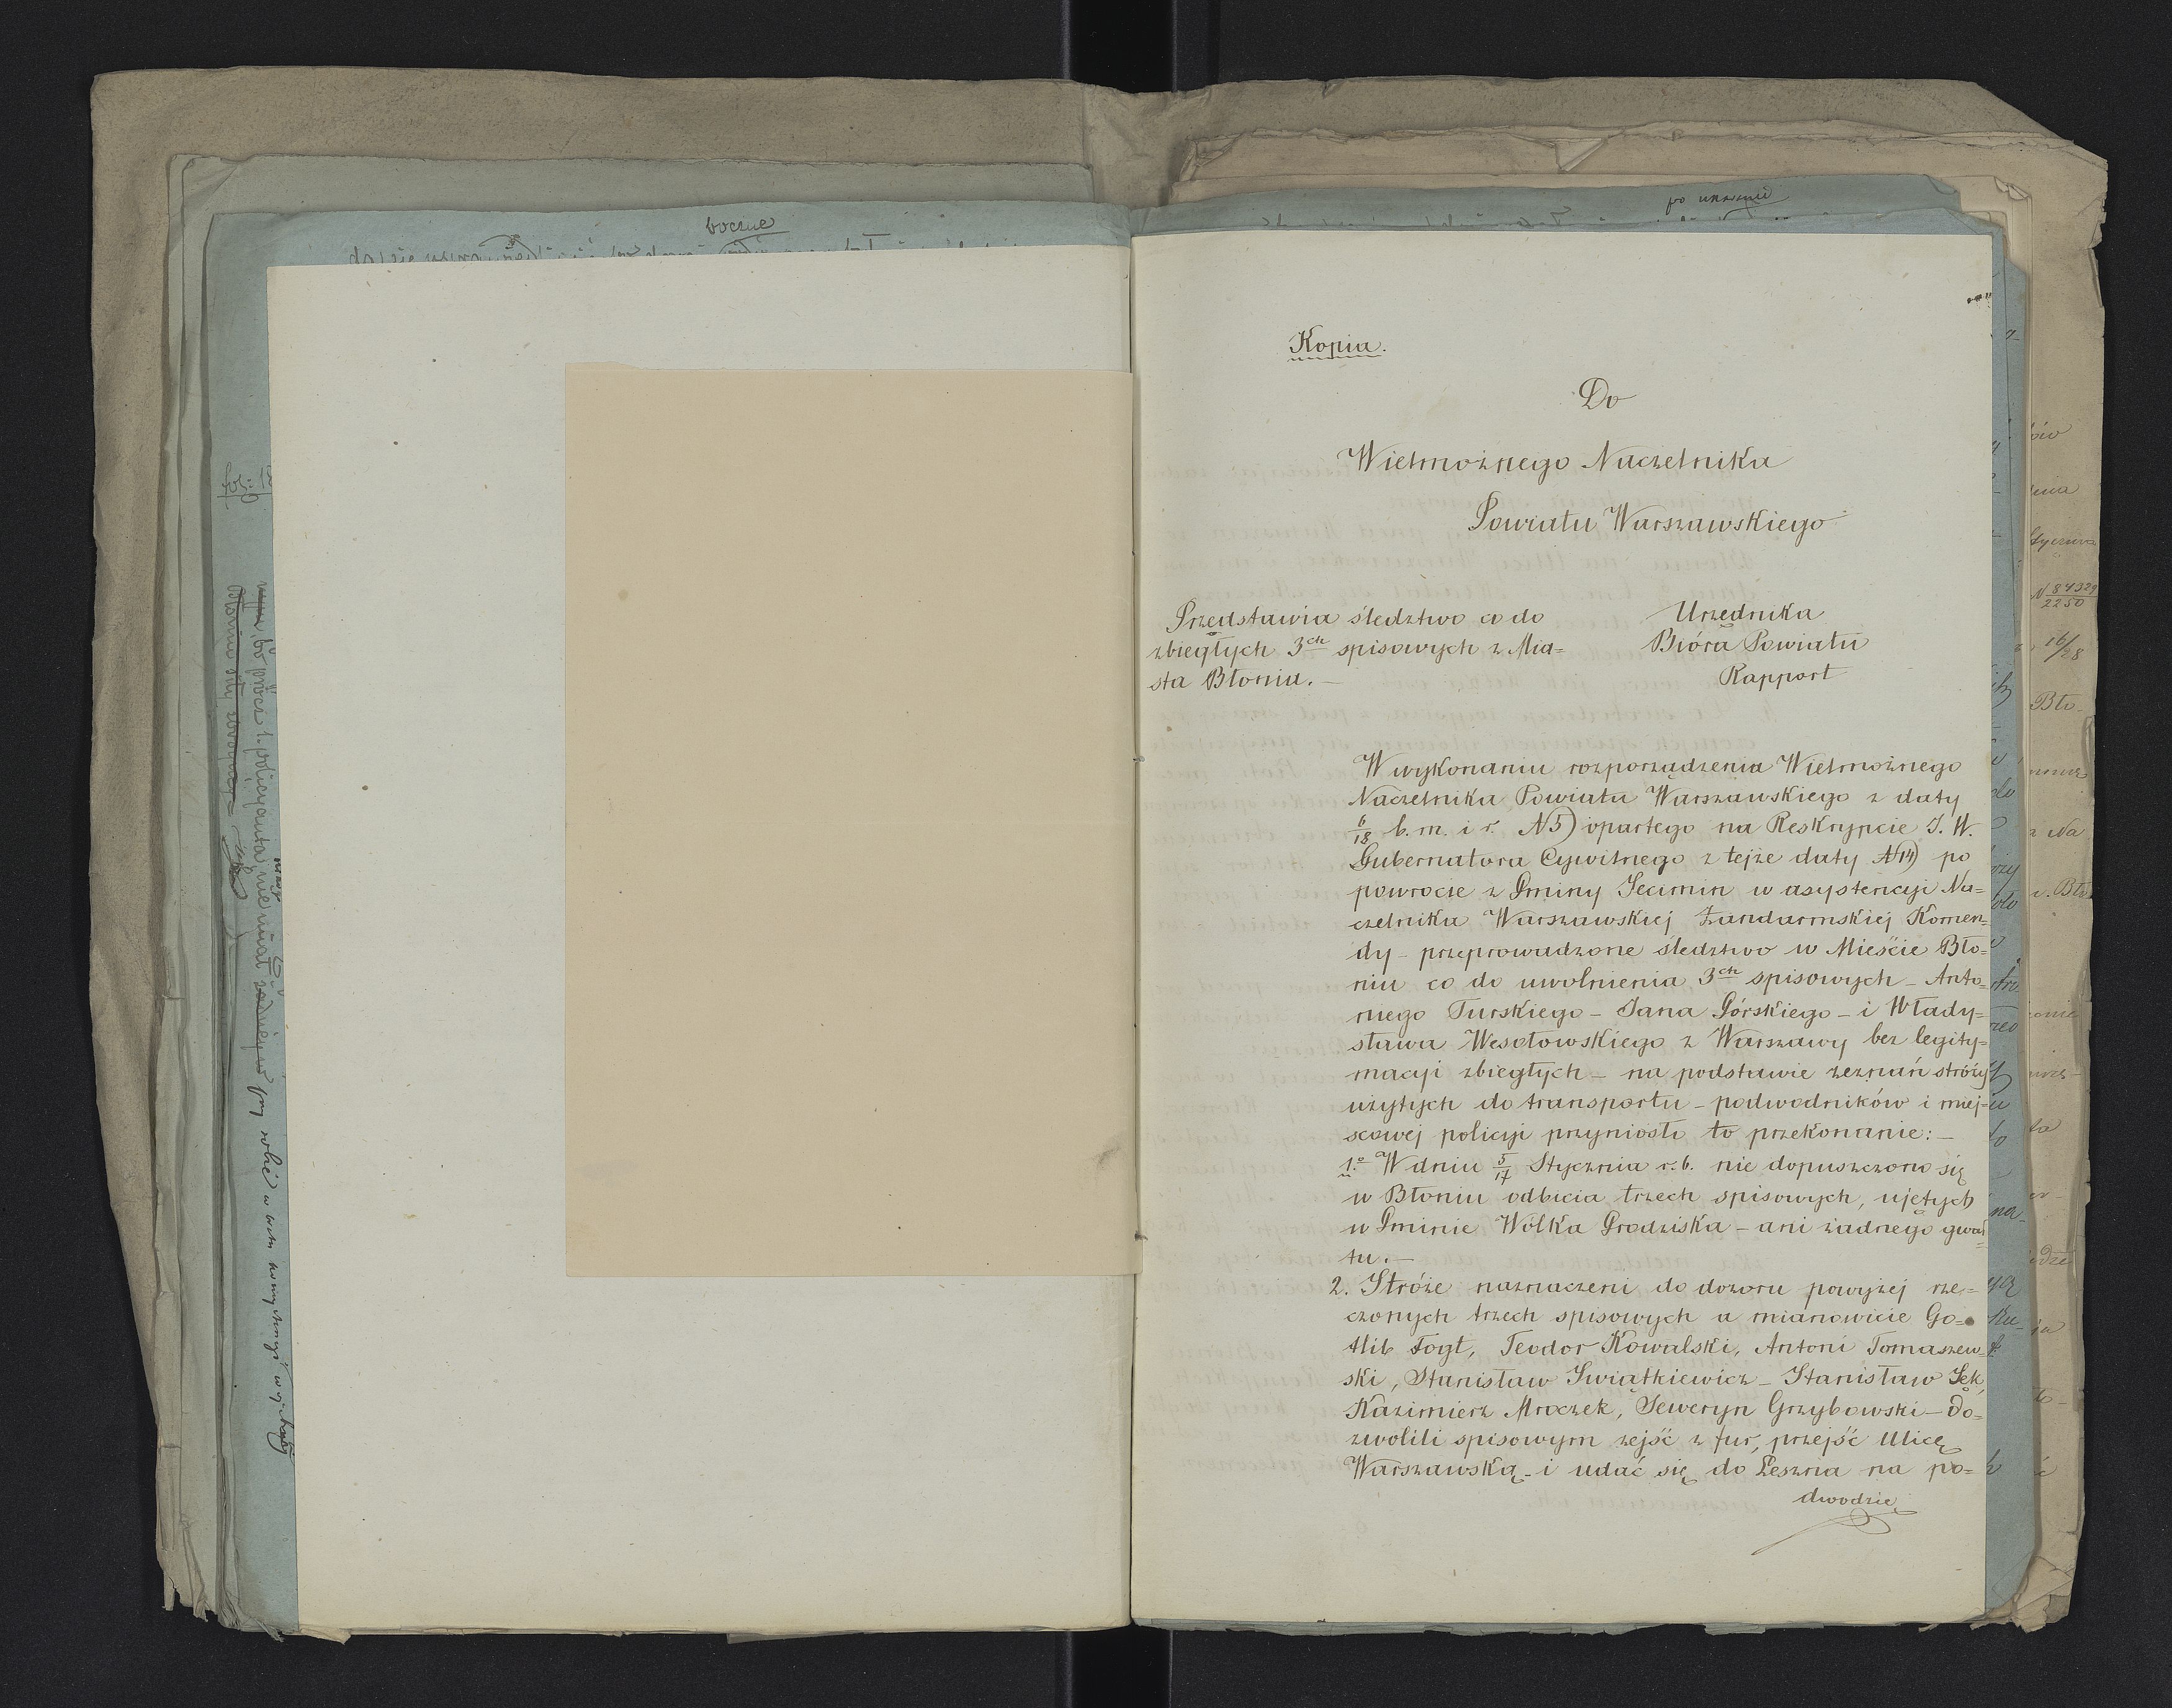 boczne
fol: 12
po
Kopia.
Do
Wielmożnego Naczelnika
Powiatu Warszawskiego
Przedstawia śledztwo co do
zbiegłych 3ch spisowych z Mia=
sta Błonia. —
Urzędnika
Bióra Powiatu
Rapport
W wykonaniu rozporządzenia Wielmożnego
Naczelnika Powiatu Warszawskiego z daty
6/18 b. m. i r. N5) opartego na Reskrypcie J. W.
Gubernatora Cywilnego z tejże daty N14) po
powrocie z Gminy Secimin w asystencyi Na=
czelnika Warszawskiej Żandarmskiej Komen=
dy – przeprowadzone śledztwo w Mieście Bło=
niu co do uwolnienia 3ch spisowych – Anto=
niego Turskiego – Jana Górskiego – i Włady=
sława Wesołowskiego z Warszawy bez legity=
macyi zbiegłych – na podstawie zeznań stróży
użytych do transportu – podwodników i miej=
scowej policyi przyniosło to przekonanie: –
1.o W dniu 5/17 Stycznia r. b. nie dopuszczono się
w Błoniu odbicia trzech spisowych, ujętych
w Gminie Wólka Grodziska – ani żadnego gwał=
tu. —
2. Stróże naznaczeni do dozoru powyżej rze=
czonych trzech spisowych a mianowicie Go=
tlib Fogt, Teodor Kowalski, Antoni Tomaszew=
ski, Stanisław Swiątkiewicz – Stanisław Sęk,
Kazimierz Mroczek, Seweryn Grzybowski – do=
zwolili spisowym zejść z fur, przejść Ulicę
Warszawską – i udać się do Leszna na po=
dwodzie
N 84329/2250
16/28
Bło-